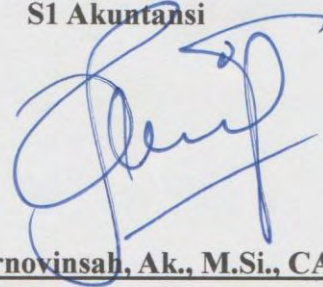 S1 Akuntansi
rnovinsah, Ak., M.Si., CA